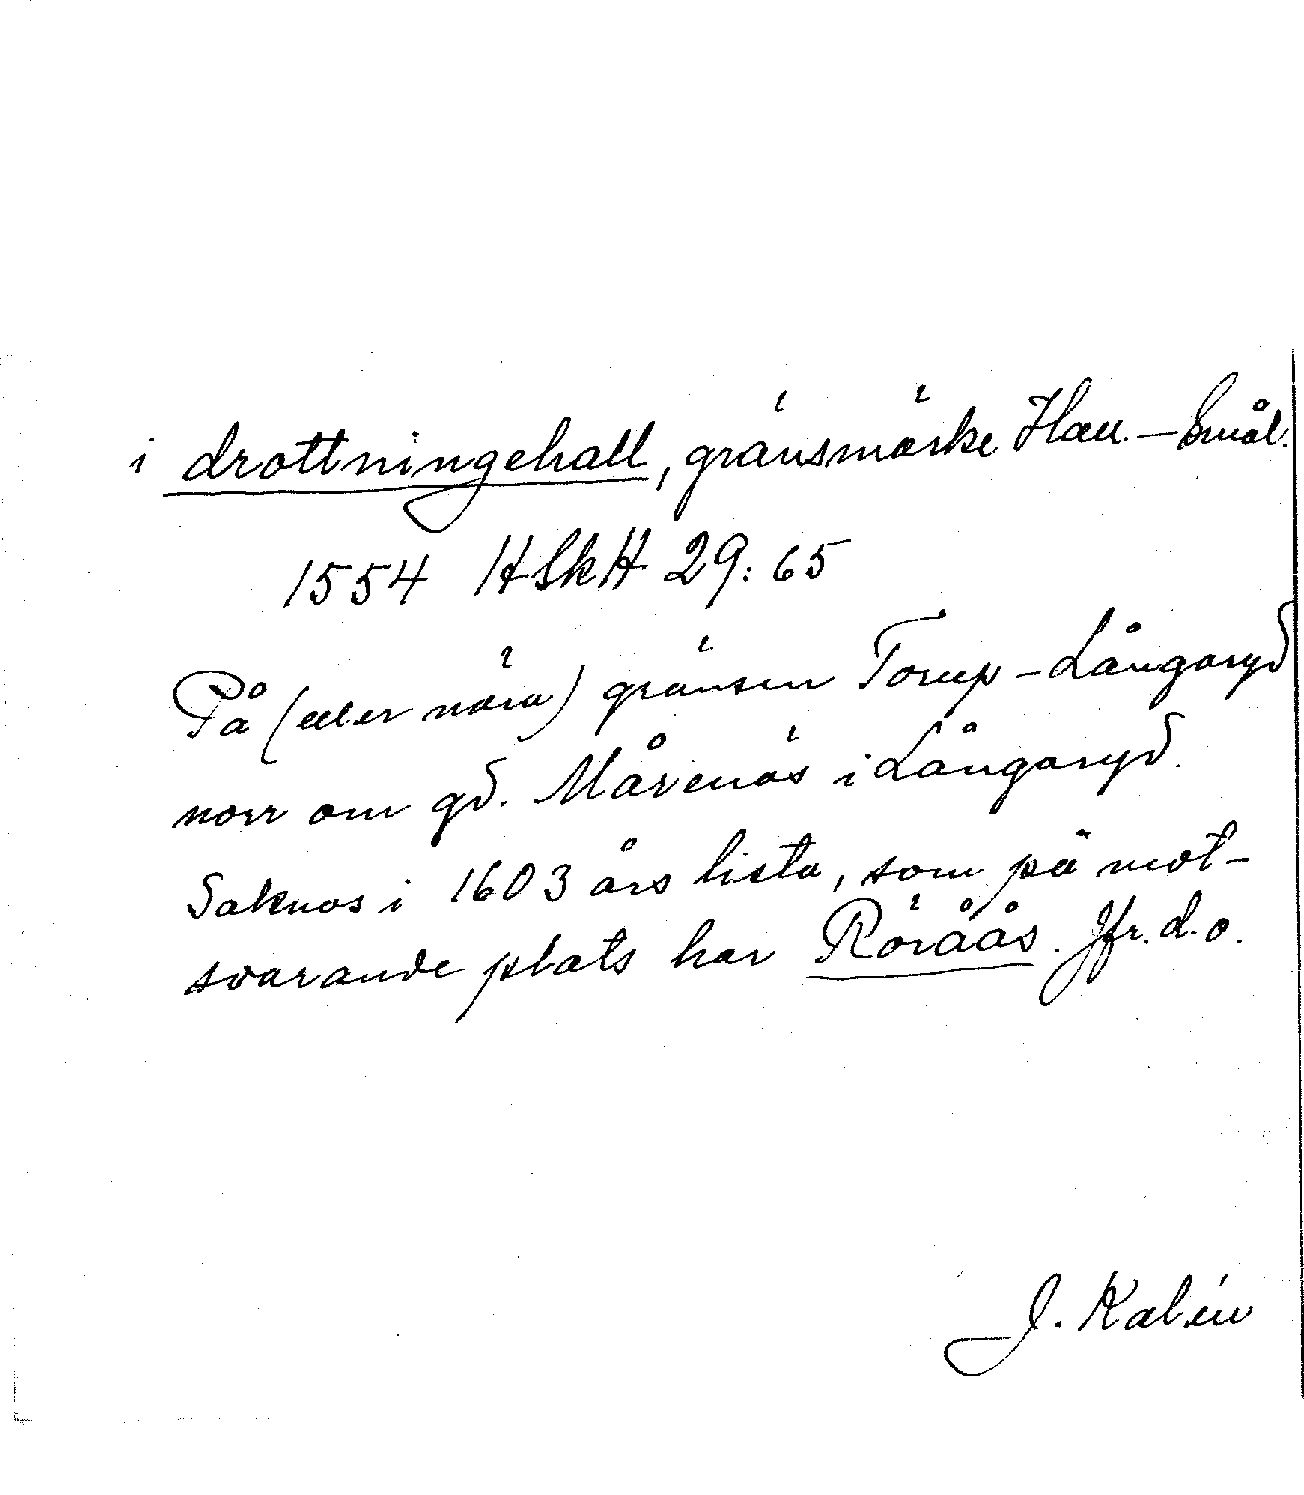 i drottningehall, gränsmärke Hall.—Smål.
1554 HSkH 29:65
På (eller nära) gränsen Torup–Långaryd
norr om gd. Mårenäs i Långaryd.
Saknas i 1603 års lista, som på mot-
svarande plats har Röråås. Jfr. d.o.
J. Kalén